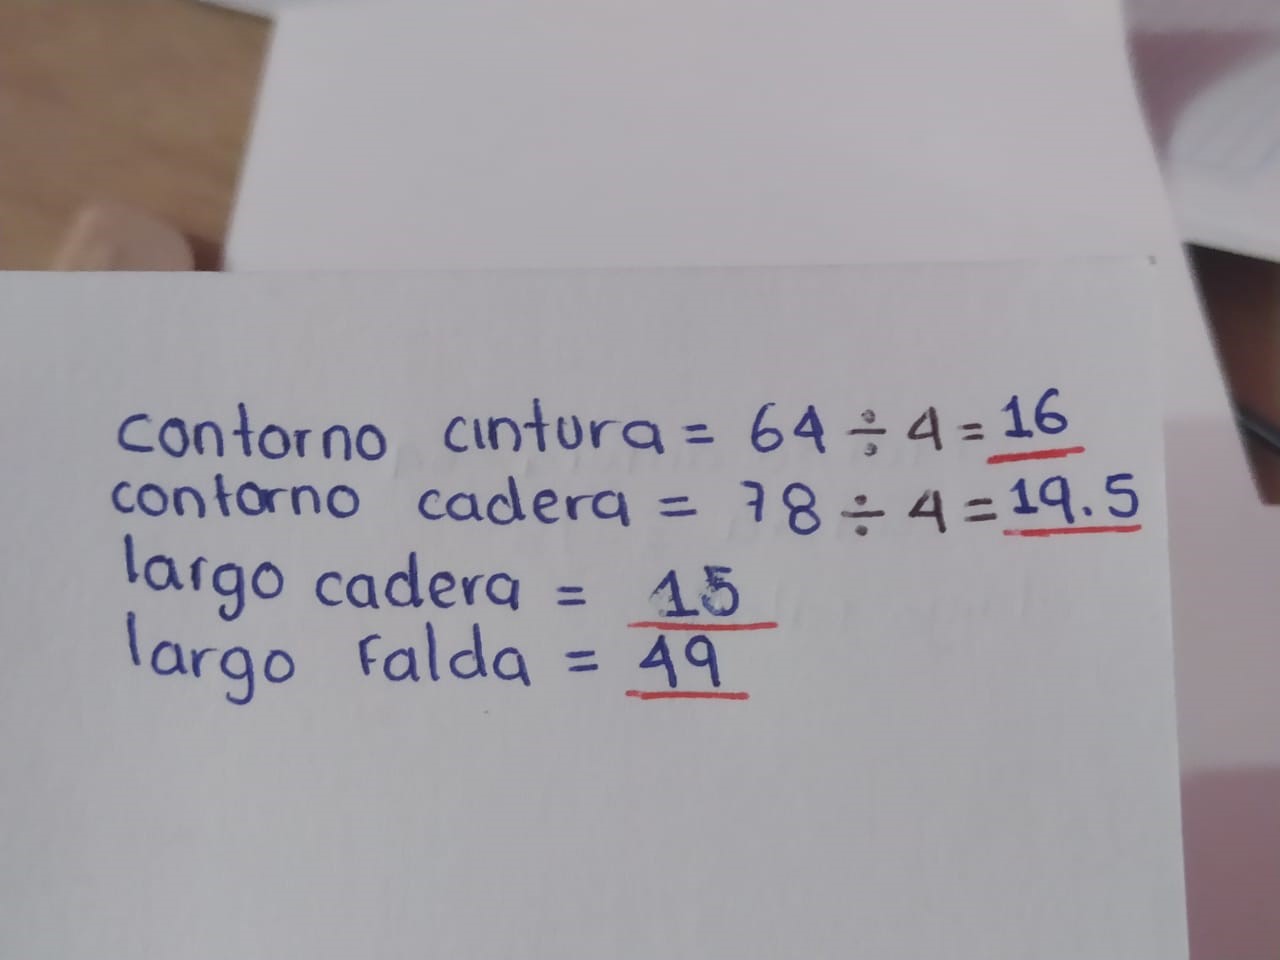 contorno cintura = 64 ÷ 4 = 16
contorno cadera = 78 ÷ 4 = 19.5
largo cadera = 15
largo Falda = 49